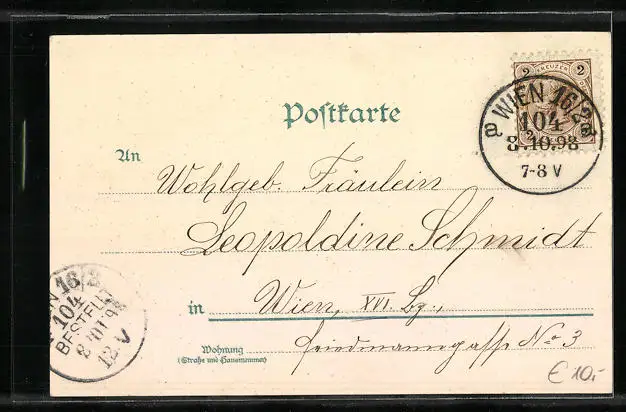 2 KREUZER 2
Postkarte
WIEN 16/2
104
8.10.98
7-8 V
An
Wohlgeb. Fräulein
Leopoldine Schmidt
in Wien, XVI. Bz.,
Wohnung
(Straße und Hausnummer)
Friedmanngasse No 3
16/2
104
BESTELLT
8 10 98
12 V
€ 10,-